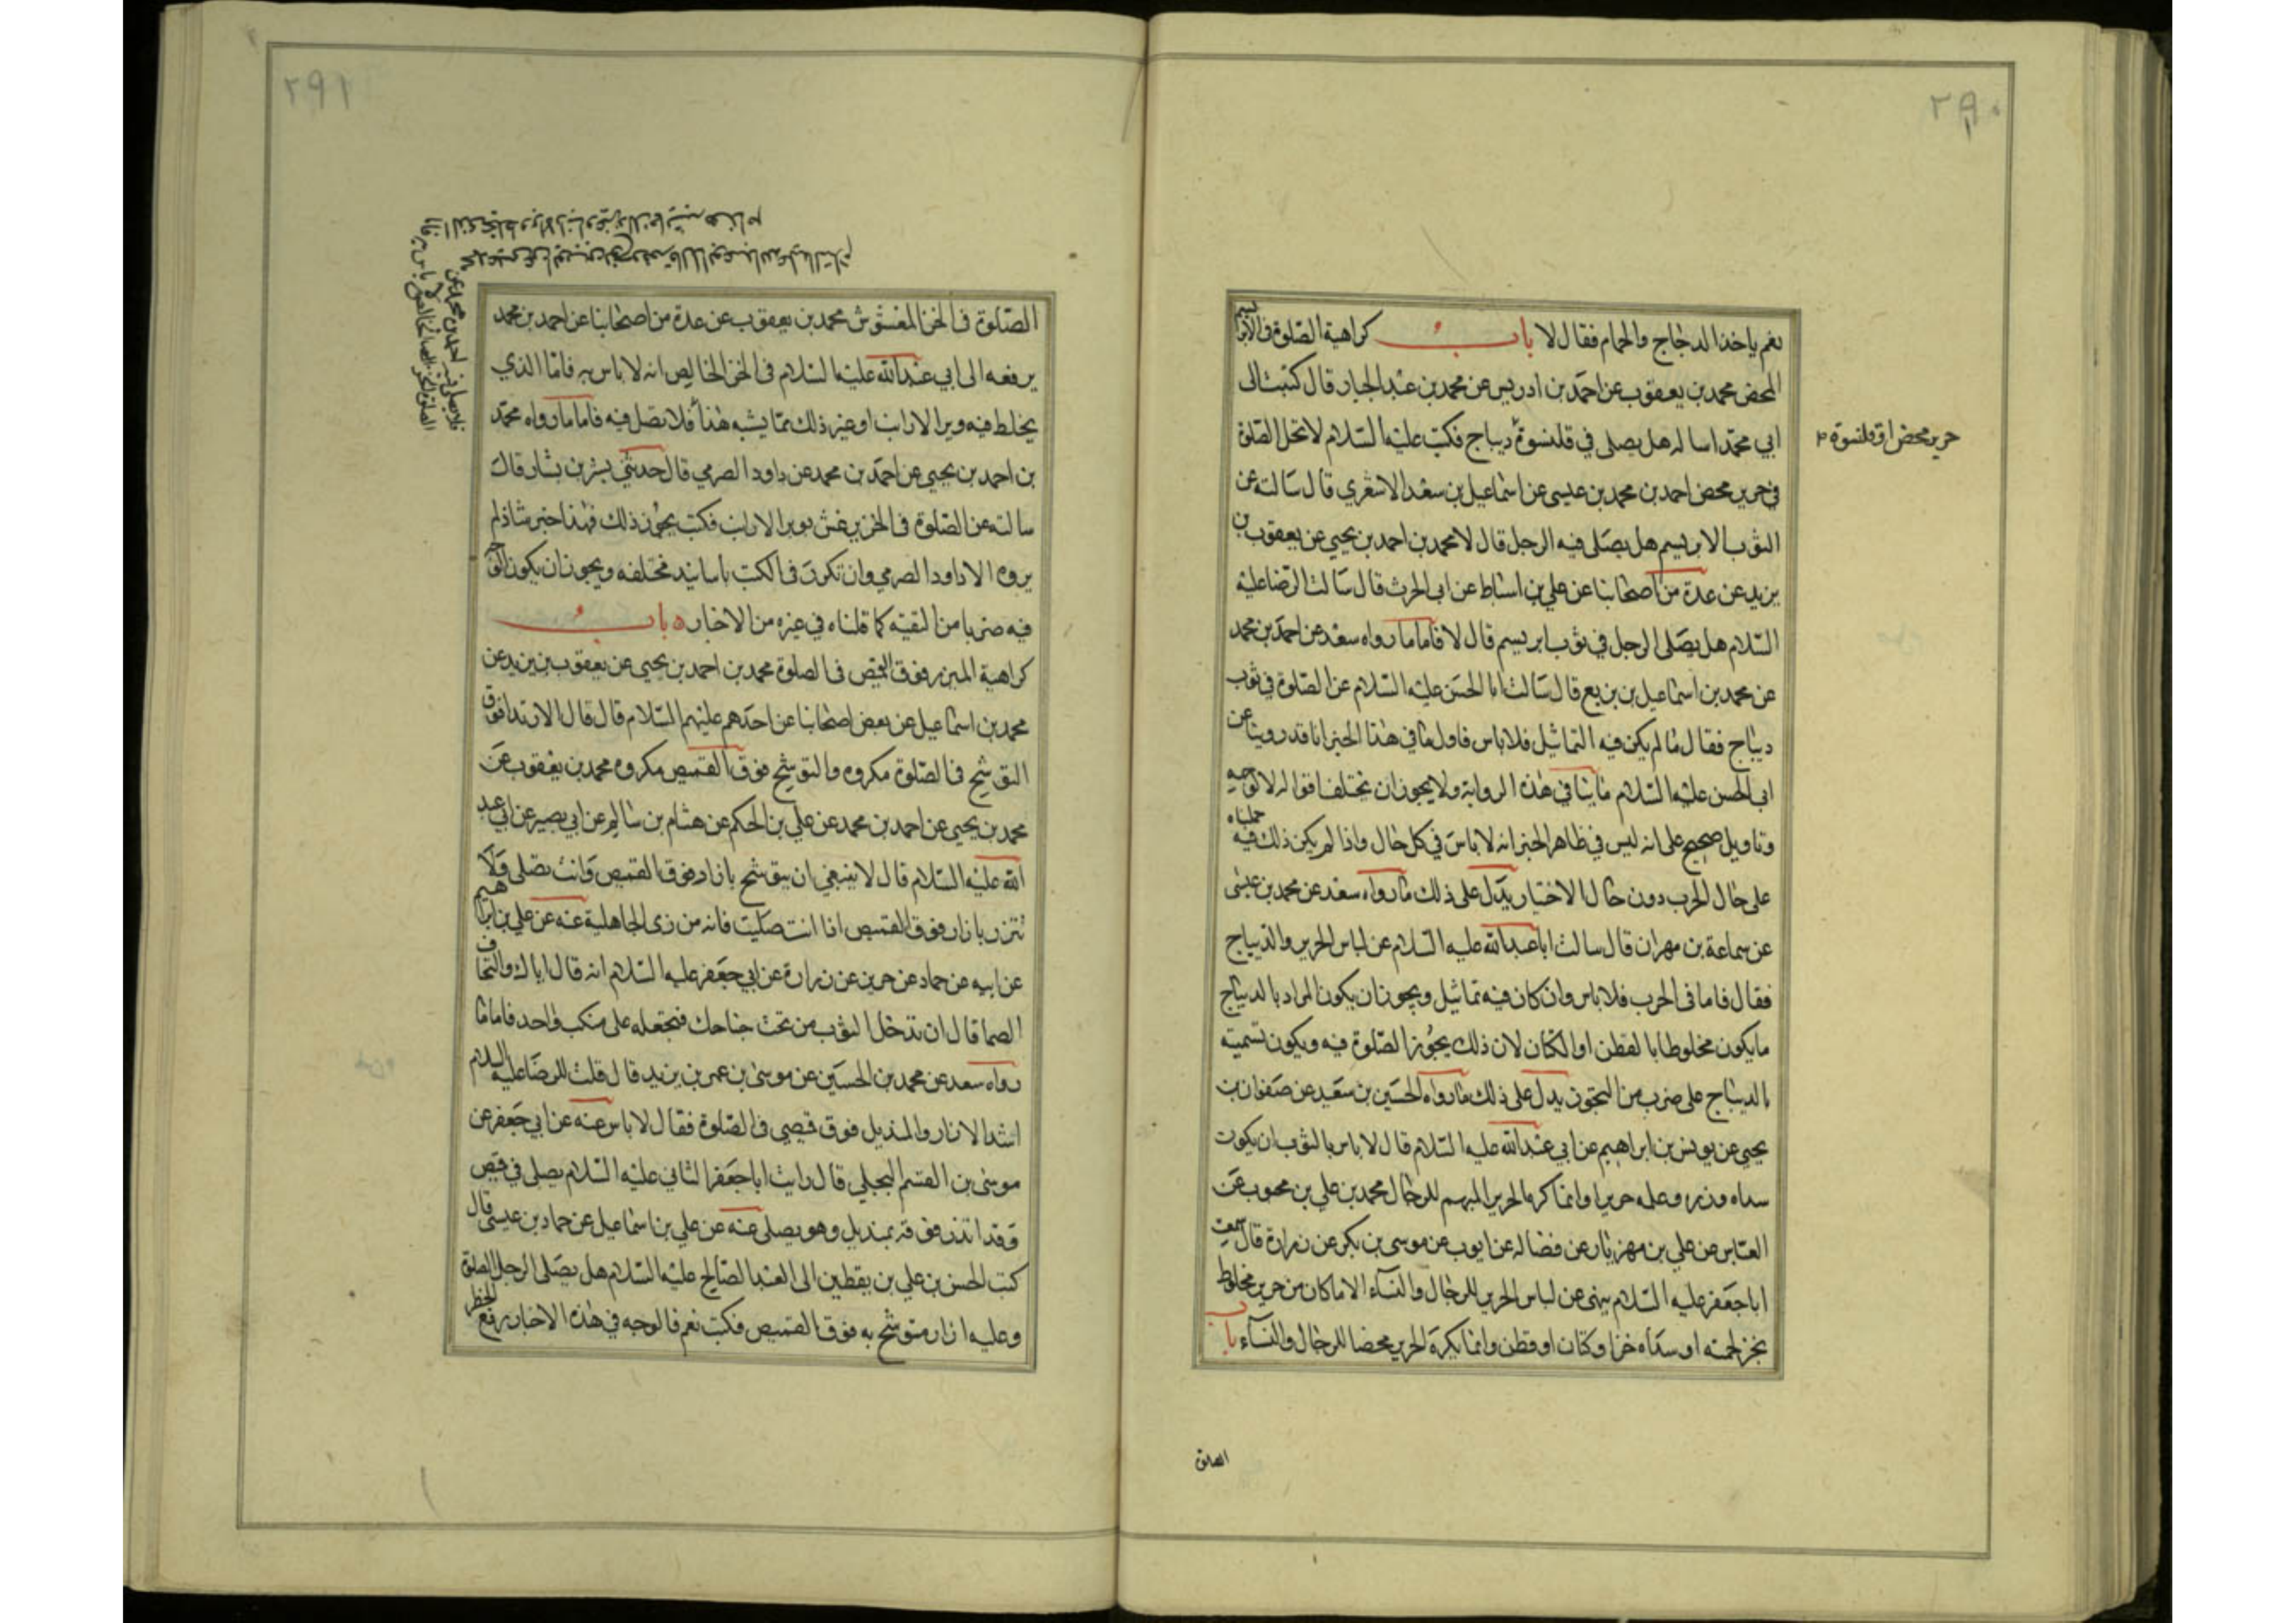 ٢٩٠
نعم ياخذ الدجاج والحمام فقال لا باب كراهية الصلوة في الابريسم
المحض محمد بن يعقوب عن احمد بن ادريس عن محمد بن عبد الجبار قال كتبت الى
ابي محمد اساله هل يصلى في قلنسوة ديباج فكتب عليه السلام لا تحل الصلوة
حرير محض او قلنسوة
في حرير محض احمد بن محمد بن عيسى عن اسماعيل بن سعد الاشعري قال سالته عن
الثوب الابريسم هل يصلى فيه الرجل قال لا محمد بن احمد بن يحيى عن يعقوب بن
يزيد عن عدة من اصحابنا عن علي بن اسباط عن ابي الحرث قال سالت الرضا عليه
السلام هل يصلى الرجل في ثوب ابريسم قال لا فاما ما رواه سعد عن احمد بن محمد
عن محمد بن اسماعيل بن بزيع قال سالت ابا الحسن عليه السلام عن الصلوة في ثوب
ديباج فقال ما لم يكن فيه التماثيل فلا باس فاول ما في هذا الخبر انا قد روينا عن
ابي الحسن عليه السلام ما ينافي هذه الرواية ولا يجوز ان تختلف اقواله لا لوجه
وتاويل صحيح على انه ليس في ظاهر الخبر انه لا باس في كل حال واذا لم يكن ذلك فيه حملناه
على حال الحرب دون حال الاختيار يدل على ذلك ما رواه سعد عن محمد بن عيسى
عن سماعة بن مهران قال سالت ابا عبد الله عليه السلام عن لباس الحرير والديباج
فقال فاما في الحرب فلا باس وان كان فيه تماثيل ويجوز ان يكون المراد بالديباج
ما يكون مخلوطا بالقطن او الكتان لان ذلك يجوز الصلوة فيه ويكون تسميته
بالديباج على ضرب من التجوز يدل على ذلك ما رواه الحسين بن سعيد عن صفوان بن
يحيى عن يونس بن ابراهيم عن ابي عبد الله عليه السلام قال لا باس بالثوب ان يكون
سداه وزره وعلمه حريرا وانما كره الحرير المبهم للرجال محمد بن علي بن محبوب عن
العباس عن علي بن مهزيار عن فضاله عن ايوب عن موسى بن بكر عن زرارة قال سمعت
ابا جعفر عليه السلام ينهى عن لباس الحرير للرجال والنساء الا ما كان من حرير مخلوط
بخز لحمته او سداه خز او كتان او قطن وانما يكره الحرير محضا للرجال والنساء باب
الصلوة
٢٩١
الصلوة في الخز المغشوش محمد بن يعقوب عن عدة من اصحابنا عن احمد بن محمد
يرفعه الى ابي عبد الله عليه السلام في الخز الخالص انه لا باس به فاما الذي
يخلط فيه وبر الارانب او غير ذلك مما يشبه هذا فلا تصل فيه فاما ما رواه محمد
بن احمد بن يحيى عن احمد بن محمد عن داود الصرمي قال حدثني بشر بن بشار قال
سالته عن الصلوة في الخز يغش بوبر الارانب فكتب يجوز ذلك فهذا خبر شاذ لم
يروه الا داود الصرمي وان تكرر في الكتب باسانيد مختلفه ويجوز ان يكون الوجه
فيه ضربا من التقيه كما قلناه في غيره من الاخبار باب
كراهية الميزر فوق القميص في الصلوة محمد بن احمد بن يحيى عن يعقوب بن يزيد عن
محمد بن اسماعيل عن بعض اصحابنا عن احدهم عليهم السلام قال قال الارتدا فوق
التوشيح في الصلوة مكروه والتوشيح فوق القميص مكروه محمد بن يعقوب عن
محمد بن يحيى عن احمد بن محمد عن علي بن الحكم عن هشام بن سالم عن ابي بصير عن ابي عبد
الله عليه السلام قال لا ينبغي ان يتوشح بازار فوق القميص وانت تصلى ولا
تتزر بازار فوق القميص اذا انت صليت فانه من زى الجاهلية عنه عن علي بن ابراهيم
عن ابيه عن حماد عن حريز عن زرارة عن ابي جعفر عليه السلام انه قال اياك والتحاف
الصما قال ان تدخل الثوب من تحت جناحك فتجعله على منكب واحد فاما ما
رواه سعد عن محمد بن الحسين عن موسى بن عمر بن يزيد قال قلت للرضا عليه السلام
اشد الازار والمنديل فوق قميصي في الصلوة فقال لا باس عنه عن ابي جعفر عن
موسى بن القسم البجلي قال رايت ابا جعفر الثاني عليه السلام يصلي في قميص
وقد اتزر فوقه بمنديل وهو يصلى عنه عن علي بن اسماعيل عن حماد بن عيسى قال
كتب الحسن بن علي بن يقطين الى العبد الصالح عليه السلام هل يصلى الرجل الصلوة
وعليه ازار متوشح به فوق القميص فكتب نعم فالوجه في هذه الاخبار رفع الحظر